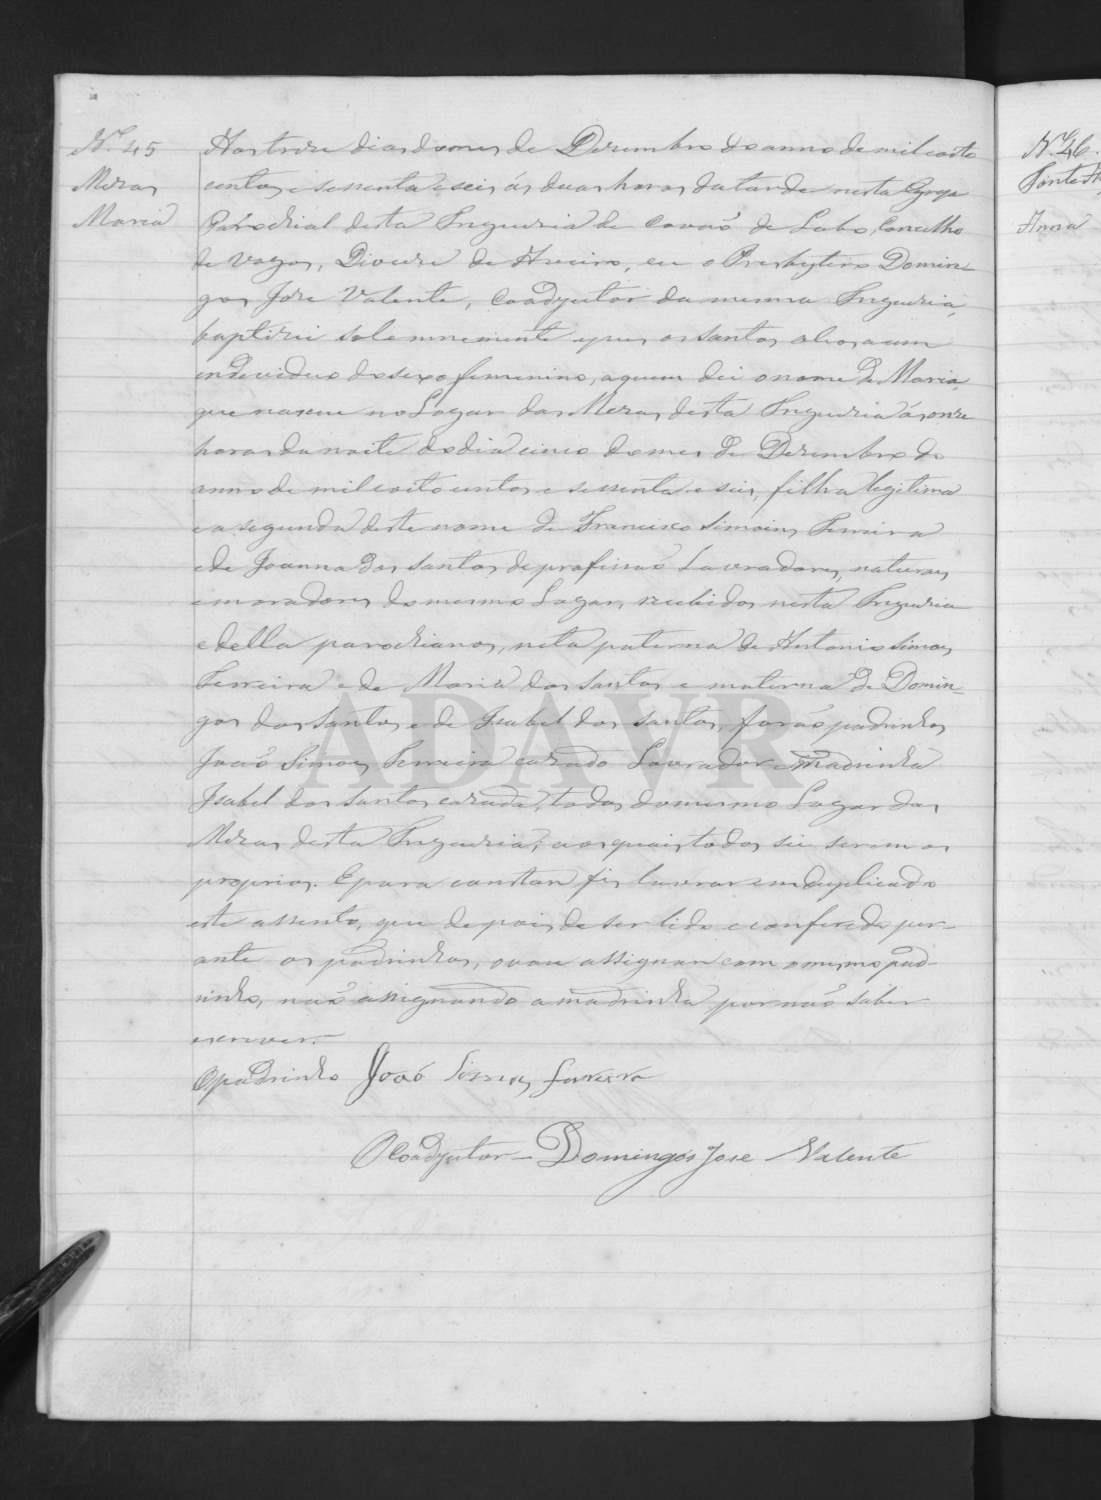 N.º 45
Mezas
Maria
Aos treze dias do mes de Dezembro do anno de mil e oito
centos e sessenta e seis ás duas horas da tarde nesta Egreja
Parochial desta Freguezia de Covaõ de Lobo, Concelho
de Vagos, Diocese de Aveiro, eu o Presbytero Domin-
gos Jose Valente, Coadjutor da mesma Freguezia,
baptizei solemnemente e pus os santos oleos a um
individuo do sexo femenino, a quem dei o nome de Maria,
que nasceu no Lugar das Mezas desta Freguezia ás onze
horas da noite do dia cinco do mes de Dezembro do
anno de mil e oito centos e sessenta e seis, filha legitima
e a segunda deste nome de Francisco Simoins Ferreira
e de Joanna dos Santos de profissaõ Lavradores, naturaes
e moradores do mesmo Lugar, recebidos nesta Freguezia
e della parochianos, neta paterna de Antonio Simoes
Ferreira e de Maria dos Santos e materna de Domin-
gos dos Santos e de Isabel dos Santos, foraõ padrinhos
Joaõ Simoes Ferreira cazado Lavrador e Madrinha
Isabel dos Santos cazada, todos do mesmo Lugar das
Mezas desta Freguezia, e os quais todos sei serem os
proprios. E para constar fis lavrar em duplicado
este assento, que depois de ser lido e conferido per-
ante os padrinhos, o vou assignar com o mesmo pad-
rinho, naõ assignando a madrinha por naõ saber
escrever.
O padrinho Joaõ Simoes Ferreira
O Coadjutor - Domingos Jose Valente
ADAVR
N.º 46.
Fonte
Anna